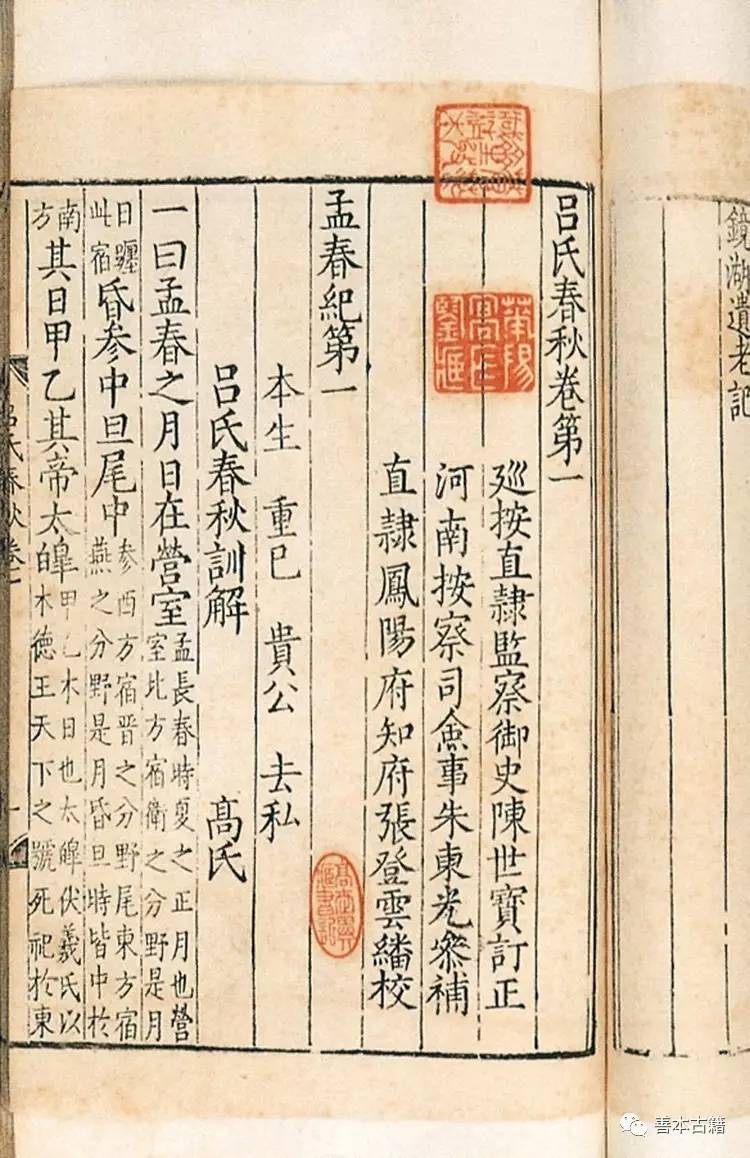 鏡湖遺老記
吕氏春秋卷第一
廵按直隷監察御史陳世寳訂正
河南按察司僉事朱東光叅補
直隷鳳陽府知府張登雲繙校
孟春紀第一
本生 重巳 貴公 去私
吕氏春秋訓解 髙氏
一曰孟春之月日在營室孟長春時夏之正月也營室北方宿衛之分野是月
日躔此宿昏參中旦尾中參西方宿晉之分野尾東方宿燕之分野是月昏旦時皆中於
南方其日甲乙其帝太皥甲乙木日也太皥伏羲氏以木德王天下之號死祀於東
吕氏春秋卷一
一
善本古籍